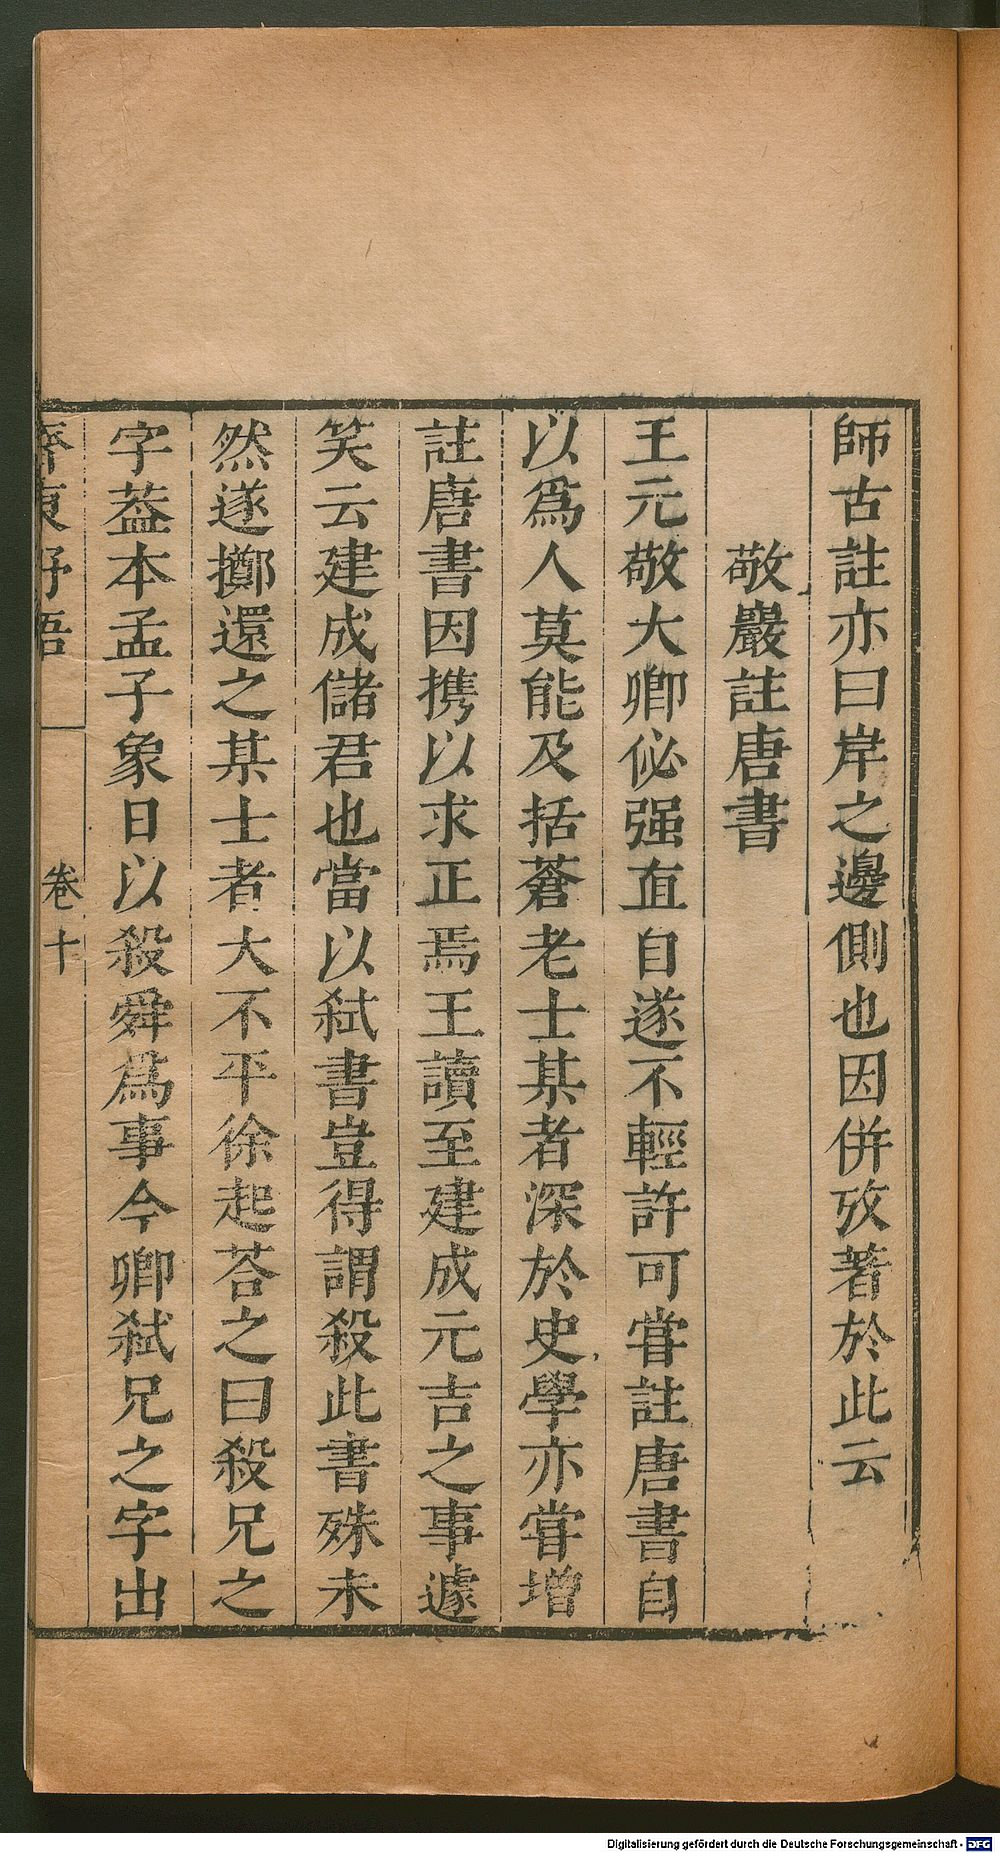 師古註亦曰岸之邊側也因併攷著於此云
敬巖註唐書
王元敬大卿佖强直自遂不輕許可嘗註唐書自
以爲人莫能及括蒼老士某者深於史學亦嘗增
註唐書因携以求正焉王讀至建成元吉之事遽
笑云建成儲君也當以弑書豈得謂殺此書殊未
然遂擲還之某士者大不平徐起荅之曰殺兄之
字葢本孟子象日以殺舜爲事今卿弑兄之字出
齊東野語
卷十
Digitalisierung gefördert durch die Deutsche Forschungsgemeinschaft - DFG